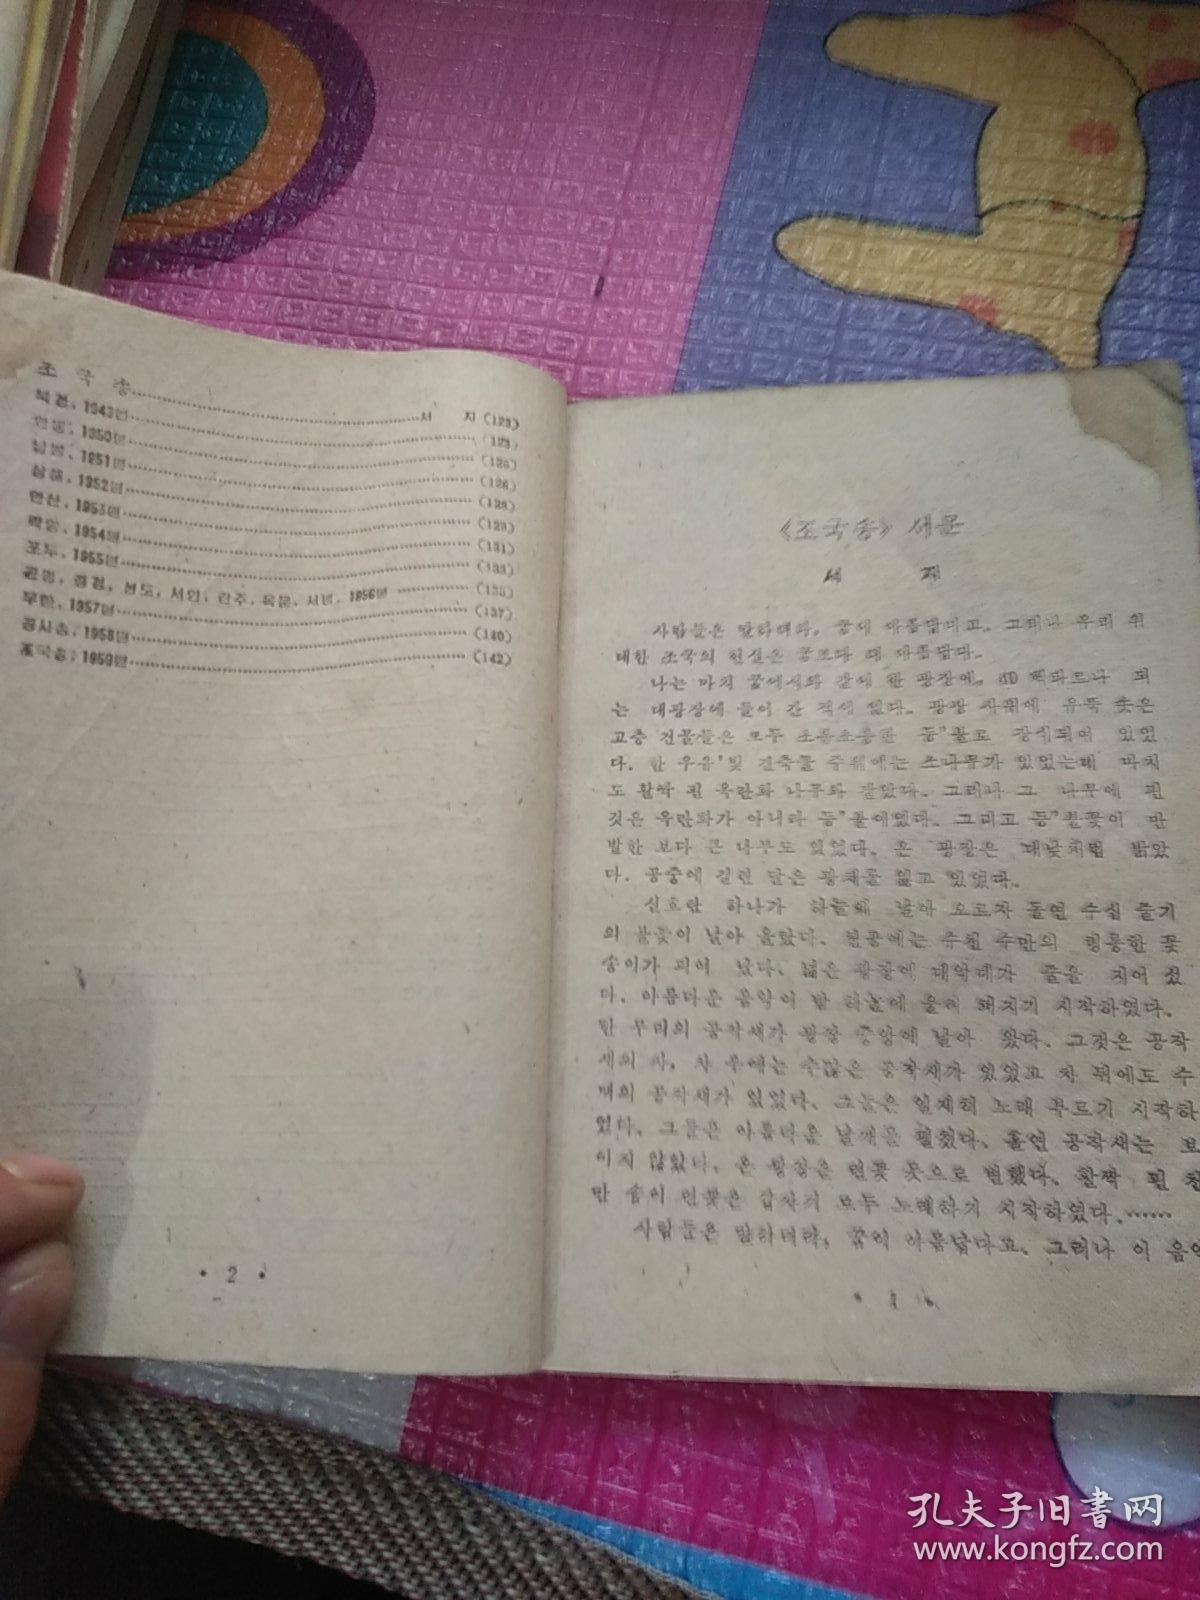 조 국 송……서 지 (123)
북경, 1949년……(123)
안동, 1950년……(125)
1951년……(126)
상해, 1952년……(128)
안산, 1953년……(129)
락양, 1954년……(131)
포두, 1955년……(133)
곤명, 중경, 성도, 서안, 란주, 옥문, 서녕, 1956년……(135)
무한, 1957년……(137)
공사송, 1958년……(140)
조국송, 1959년……(142)
• 2 •
《조국송》 서문
서 지
사람들은 말하데라, 꿈이 아름답다고. 그러나 우리 위
대한 조국의 현실은 꿈보다 더 아름답다.
나는 마치 꿈에서와 같이 한 광장에, 40 헥타르나 되
는 대광장에 들어 간 적이 있다. 광장 사위에 우뚝 솟은
고층 건물들은 모두 초롱초롱한 등"불로 장식되여 있었
다. 한 우유'빛 건축물 주위에는 소나무가 있었는데 마치
도 활짝 핀 옥란화 나무와 같았다. 그러나 그 나무에 핀
것은 옥란화가 아니라 등"불이였다. 그리고 등"불꽃이 만
발한 보다 큰 나무도 있었다. 온 광장은 대낮처럼 밝았
다. 공중에 걸린 달은 광채를 잃고 있었다.
신호탄 하나가 하늘에 날아 오르자 돌연 수십 줄기
의 불꽃이 날아 올랐다. 천공에는 수천 수만의 령롱한 꽃
송이가 피여 났다. 넓은 광장에 대악대가 줄을 지어 섰
다. 아름다운 음악이 밤 하늘에 울려 퍼지기 시작하였다.
한 무리의 공작새가 광장 중앙에 날아 왔다. 그것은 공작
새의 차, 차 우에는 수많은 공작새가 있었고 차 뒤에도 수
백의 공작새가 있었다. 그들은 일제히 노래 부르기 시작하
였다. 그들은 아름다운 날개를 펼쳤다. 돌연 공작새는 보
이지 않았다. 온 광장은 련꽃 못으로 변했다. 활짝 핀 천
만 송이 련꽃은 갑자기 모두 노래하기 시작하였다.……
사람들은 말하더라, 꿈이 아름답다고. 그러나 이 음악
• 1 •
孔夫子旧書网
www.kongfz.com